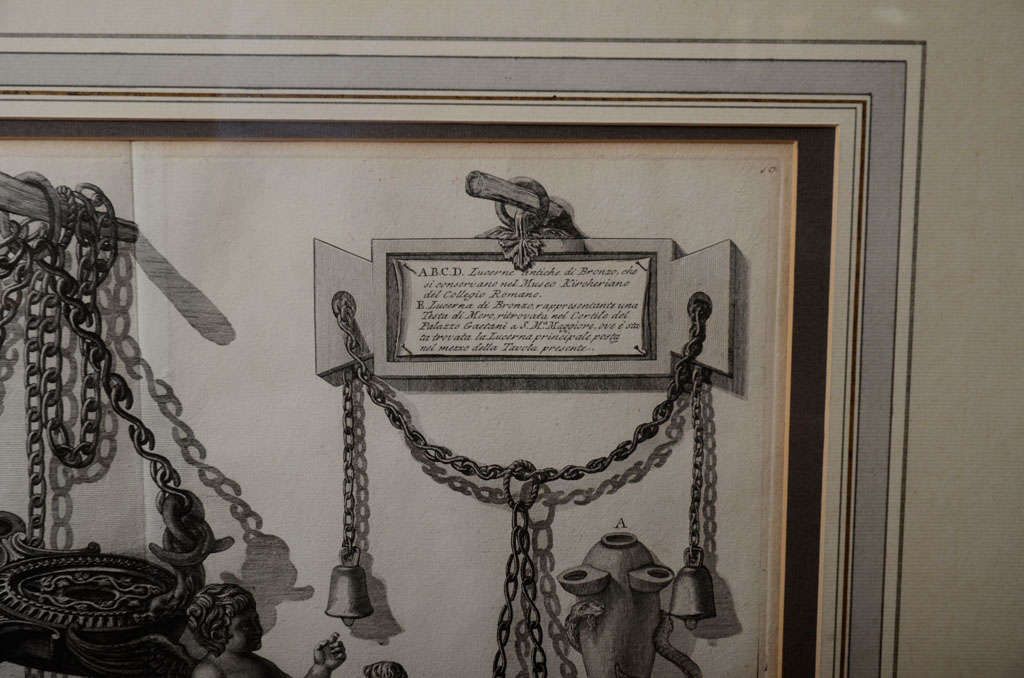 A.B.C.D. Lucerne antiche di Bronzo, che
si conservano nel Museo Kircheriano
del Collegio Romano.
E. Lucerna di Bronzo, rappresentante una
Testa di Moro, ritrovata nel Cortile del
Palazzo Gaetani a S. Mᵃ. Maggiore, ove è sta
ta trovata la Lucerna principale posta
nel mezzo della Tavola presente.
A